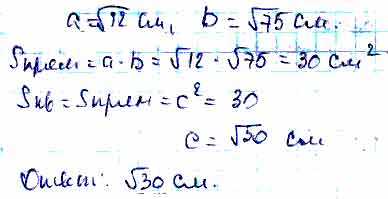 a=√12 см, b=√75 см.
Sпрям=a·b=√12·√75=30 см²
Sкв=Sпрям=c²=30
c=√30 см
Ответ: √30 см.